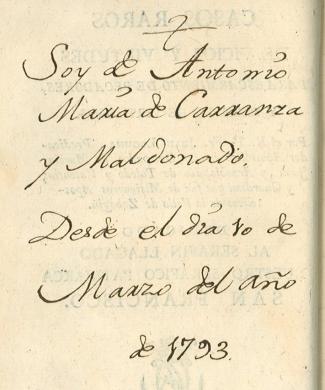 Soy de Antonio
Maria de Carranza
y Maldonado,
Desde el día 10 de
Marzo del año
de 1793.